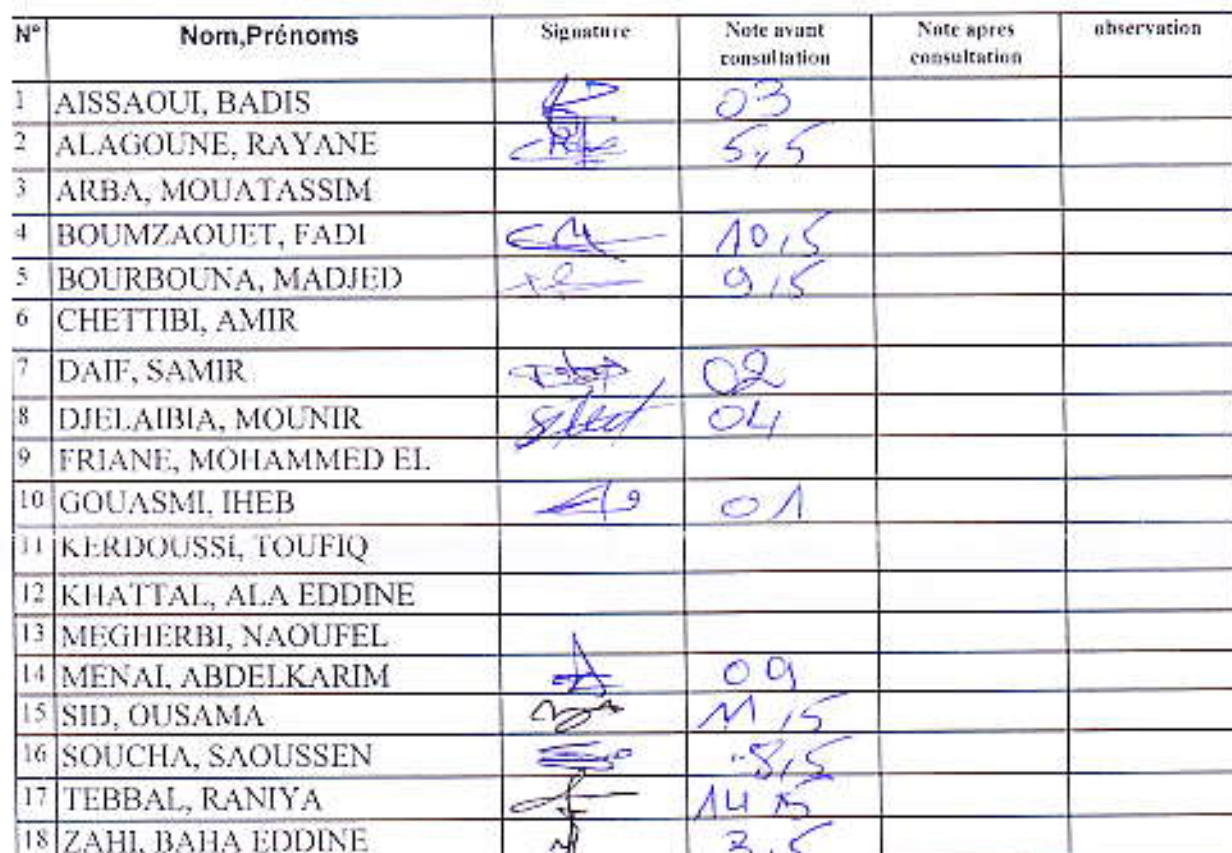 N° Nom,Prénoms Signature Note avant consultation Note apres consultation observation
1 AISSAOUI, BADIS 03
2 ALAGOUNE, RAYANE 5,5
3 ARBA, MOUATASSIM
4 BOUMZAOUET, FADI 10,5
5 BOURBOUNA, MADJED 9,5
6 CHETTIBI, AMIR
7 DAIF, SAMIR 02
8 DJELAIBIA, MOUNIR 04
9 FRIANE, MOHAMMED EL
10 GOUASMI, IHEB 01
11 KERDOUSSI, TOUFIQ
12 KHATTAL, ALA EDDINE
13 MEGHERBI, NAOUFEL
14 MENAI, ABDELKARIM 09
15 SID, OUSAMA 11,5
16 SOUCHA, SAOUSSEN 8,5
17 TEBBAL, RANIYA 14
18 ZAHI, BAHA EDDINE 3,5